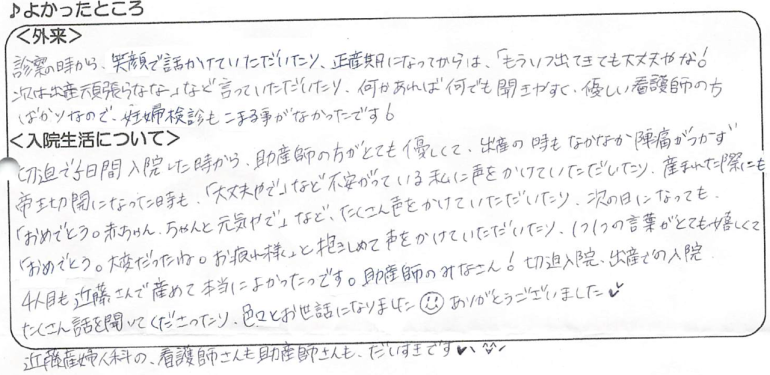 ♪よかったところ
＜外来＞
診察の時から、笑顔で話かけていただいたり、正産期になってからは、「もういつ出てきても大丈夫やな!
次は出産頑張らなな」など言っていただいたり、何かあれば何でも聞きやすく、優しい看護師の方
ばかりなので、妊婦検診もこまる事がなかったです!
＜入院生活について＞
切迫で5日間入院した時から、助産師の方がとても優しくて、出産の時もなかなか陣痛がつかず
帝王切開になった時も、「大丈夫やで」など不安がっている私に声をかけていただいたり、産まれた際にも
「おめでとう。赤ちゃん、ちゃんと元気やで」など、たくさん声をかけていただいたり、次の日になっても、
「おめでとう。大変だったね。お疲れ様」と抱きしめて声をかけていただいたり、1つ1つの言葉がとても嬉しくて
4人目も近藤さんで産めて本当によかったです。助産師のみなさん! 切迫入院、出産での入院
たくさん話を聞いてくださったり、色々とお世話になりました☺ ありがとうございました♥
近藤産婦人科の、看護師さんも助産師さんも、だいすきです♥、^^